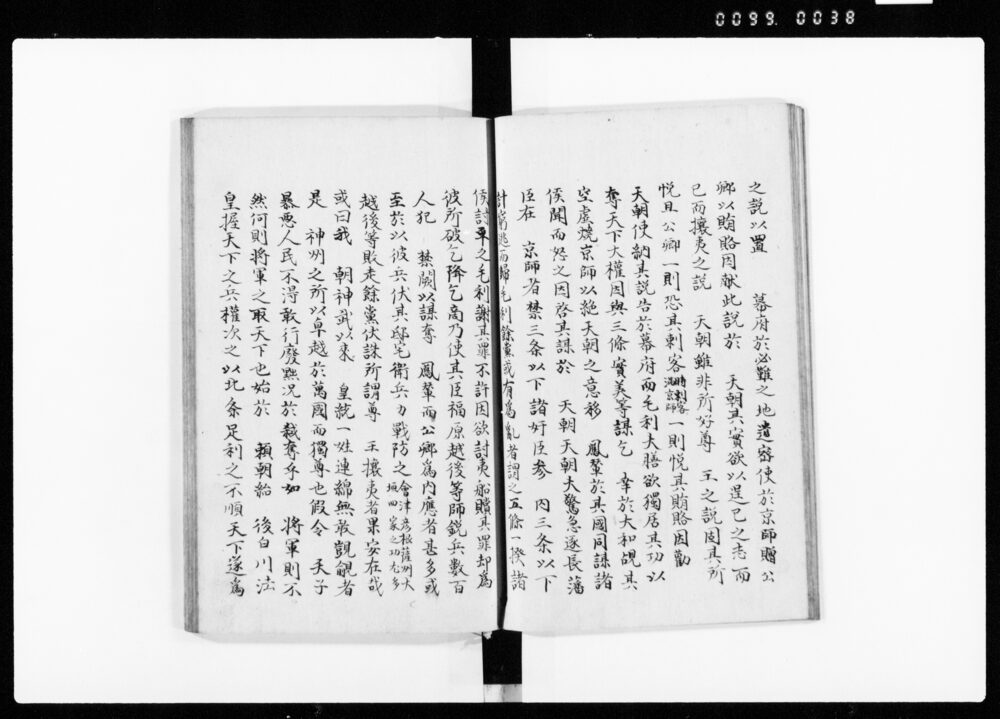 0099.0038
之説以置　幕府於必難之地遣密使於京師贈公
卿以賄賂因献此説於　天朝其實欲以逞己之志而
已而攘夷之説　天朝雖非所好尊　王之説固其所
悦且公卿一則恐其刺客一則悦其賄賂因勸
天朝使納其説告於幕府而毛利大膳欲獨居其功以
奪天下大權因與三條實美等謀乞　幸於大和覘其
空虚燒京師以絶天朝之意移　鳳輦於其國同謀諸
侯聞而怒之因啓其謀於　天朝天朝大驚急逐長藩
臣在　京師者禁三条以下諸奸臣参　内三条以下
計窮逃而歸毛利餘黨或有為亂者謂之五條一揆諸
侯討平之毛利謝其罪不許因欲討夷船贖其罪却為
彼所破乞降乞商乃使其臣福原越後等師鋭兵數百
人犯　禁闕以謀奪　鳳輦而公卿為内應者甚多或
至於以彼兵伏其邸宅衛兵力戰防之會津彦根薩州大垣四家之功尤多
越後等敗走餘黨伏誅所謂尊　王攘夷者果安在哉
或曰我　朝神武以來　皇統一姓連綿無敢覬覦者
是　神州之所以卓越於萬國而獨尊也假令　天子
暴悪人民不得敢行廢黜况於篡奪乎如　将軍則不
然何則将軍之取天下也始於　頼朝紿　後白川法
皇握天下之兵權次之以北条足利之不順天下遂為